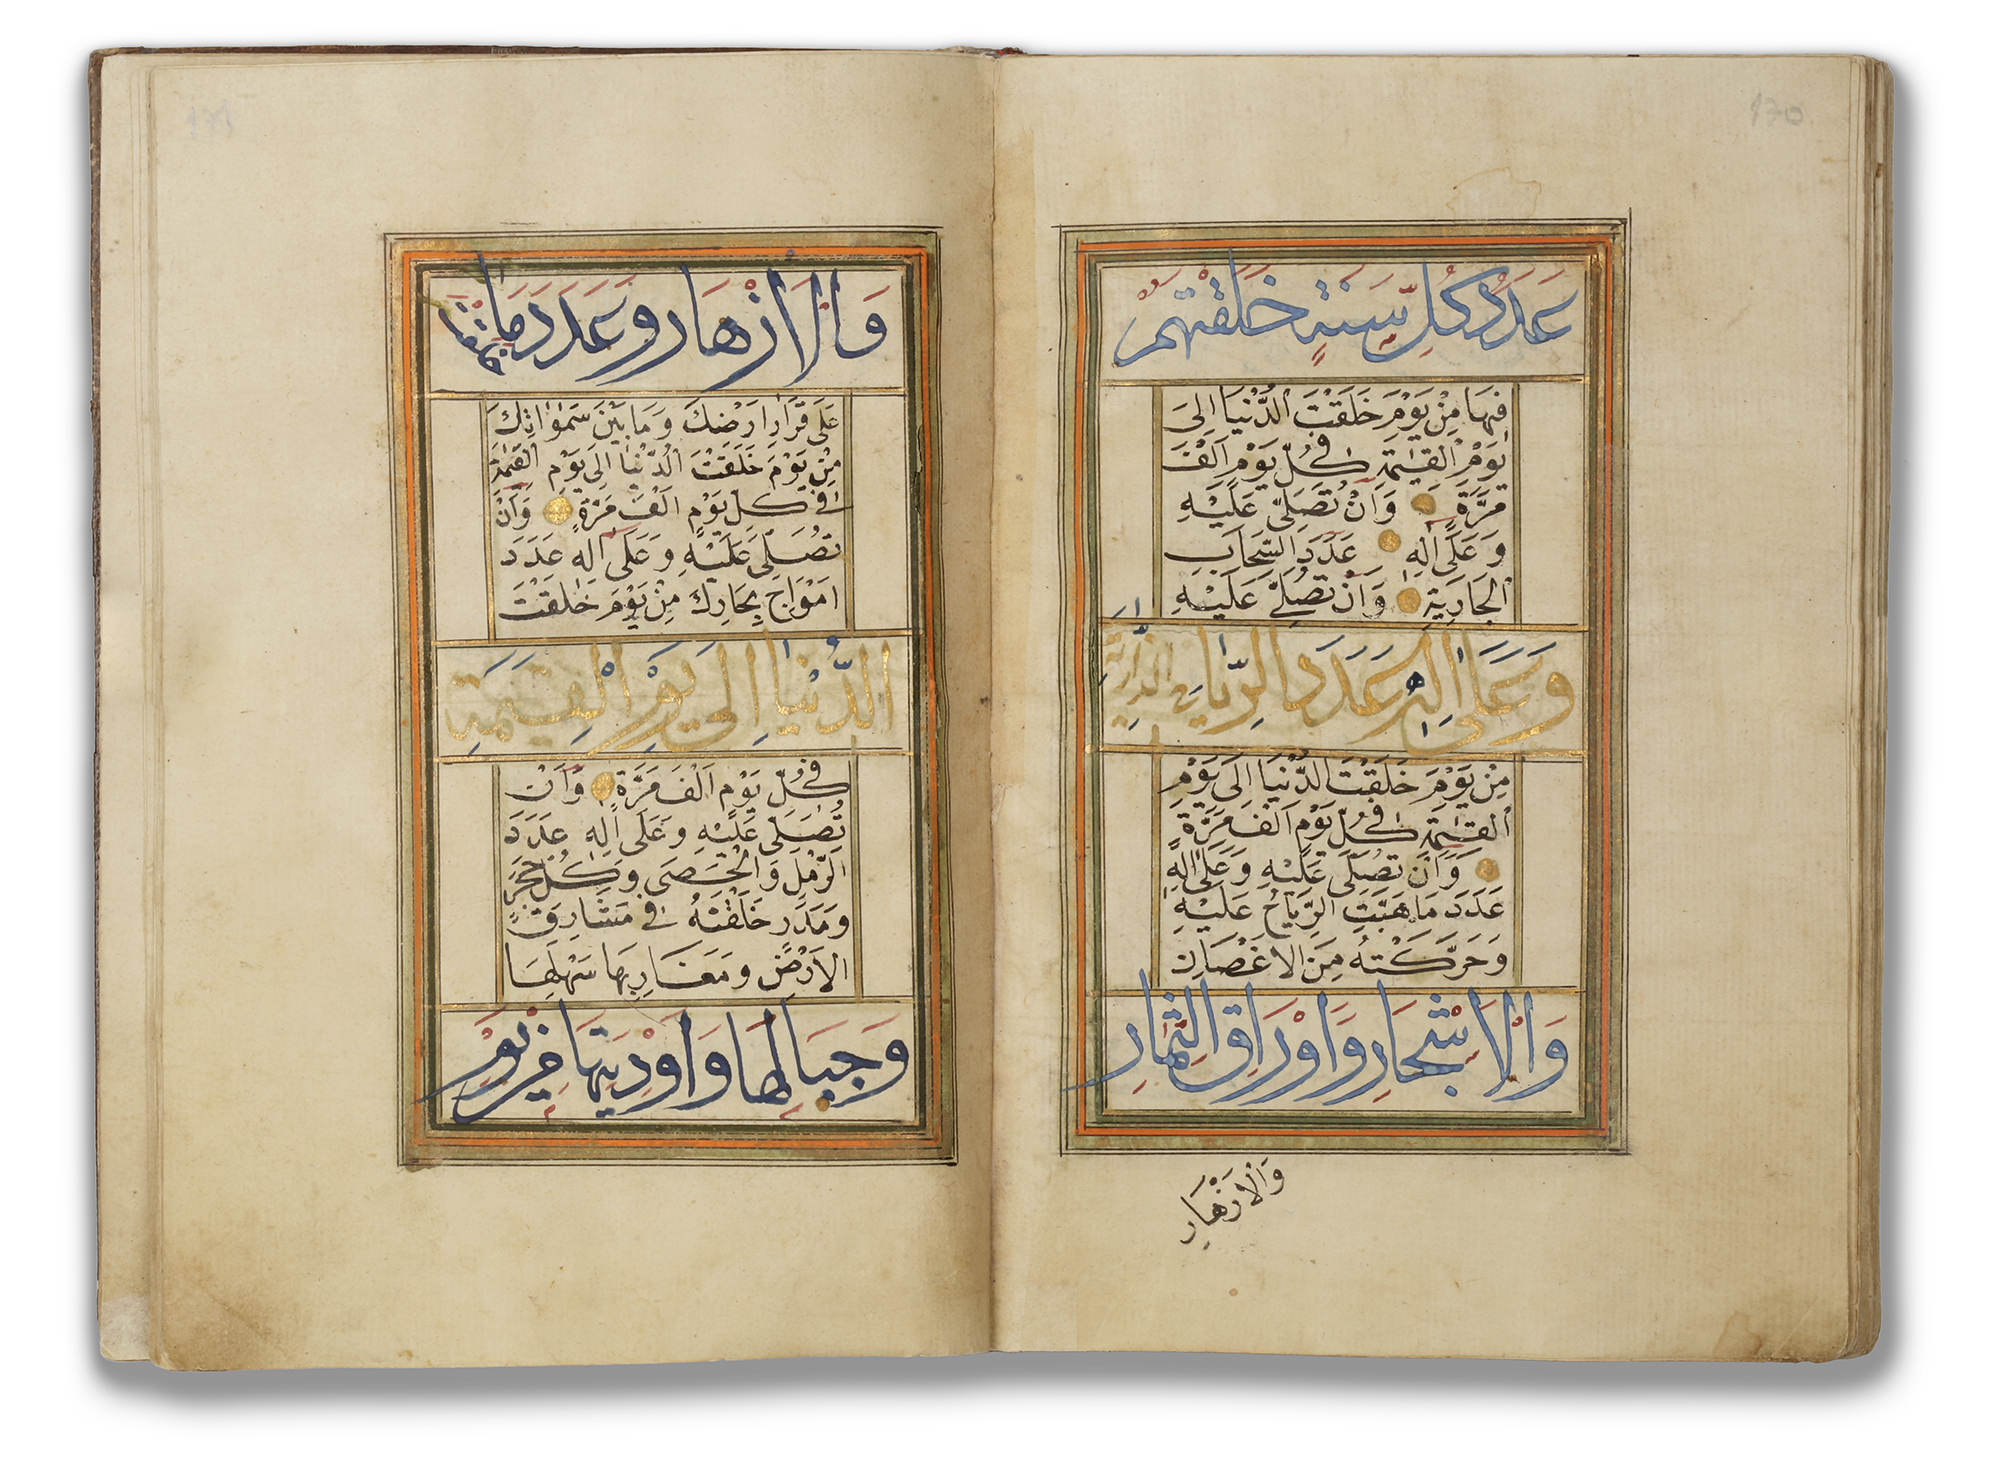 170
عَدَدَ كُلِّ سَنَةٍ خَلَقْتَهُمْ
فِيهَا مِنْ يَوْمَ خَلَقْتَ الدُّنْيَا اِلَى
يَوْمِ الْقِيٰمَةِ فِى كُلِّ يَوْمٍ اَلْفَ
مَرَّةٍ وَاَنْ تُصَلِّىَ عَلَيْهِ
وَعَلٰى اٰلِهِ عَدَدَ السَّحَابِ
الْجَارِيَةِ وَاَنْ تُصَلِّىَ عَلَيْهِ
وَعَلٰى اٰلِهِ عَدَدَ الرِّيَاحِ الذَّارِيَةِ
مِنْ يَوْمَ خَلَقْتَ الدُّنْيَا اِلَى يَوْمِ
الْقِيٰمَةِ فِى كُلِّ يَوْمٍ اَلْفَ مَرَّةٍ
وَاَنْ تُصَلِّىَ عَلَيْهِ وَعَلٰى اٰلِهِ
عَدَدَ مَا هَبَّتِ الرِّيَاحُ عَلَيْهِ
وَحَرَّكَتْهُ مِنَ الْاَغْصَانِ
وَالْاَشْجَارِ وَاَوْرَاقِ الثِّمَارِ
وَالْاَزْهَارِ
171
وَالْاَزْهَارِ وَعَدَدَ مَا خَلَقْتَ
عَلَى قَرَارِ اَرْضِكَ وَمَا بَيْنَ سَمٰوَاتِكَ
مِنْ يَوْمَ خَلَقْتَ الدُّنْيَا اِلَى يَوْمِ الْقِيٰمَةِ
فِى كُلِّ يَوْمٍ اَلْفَ مَرَّةٍ وَاَنْ
تُصَلِّىَ عَلَيْهِ وَعَلٰى اٰلِهِ عَدَدَ
اَمْوَاجِ بِحَارِكَ مِنْ يَوْمَ خَلَقْتَ
الدُّنْيَا اِلَى يَوْمِ الْقِيٰمَةِ
فِى كُلِّ يَوْمٍ اَلْفَ مَرَّةٍ وَاَنْ
تُصَلِّىَ عَلَيْهِ وَعَلٰى اٰلِهِ عَدَدَ
الرَّمْلِ وَالْحَصَى وَكُلِّ حَجَرٍ
وَمَدَرٍ خَلَقْتَهُ فِى مَشَارِقِ
الْاَرْضِ وَمَغَارِبِهَا سَهْلِهَا
وَجِبَالِهَا وَاَوْدِيَتِهَا مِنْ يَوْمِ